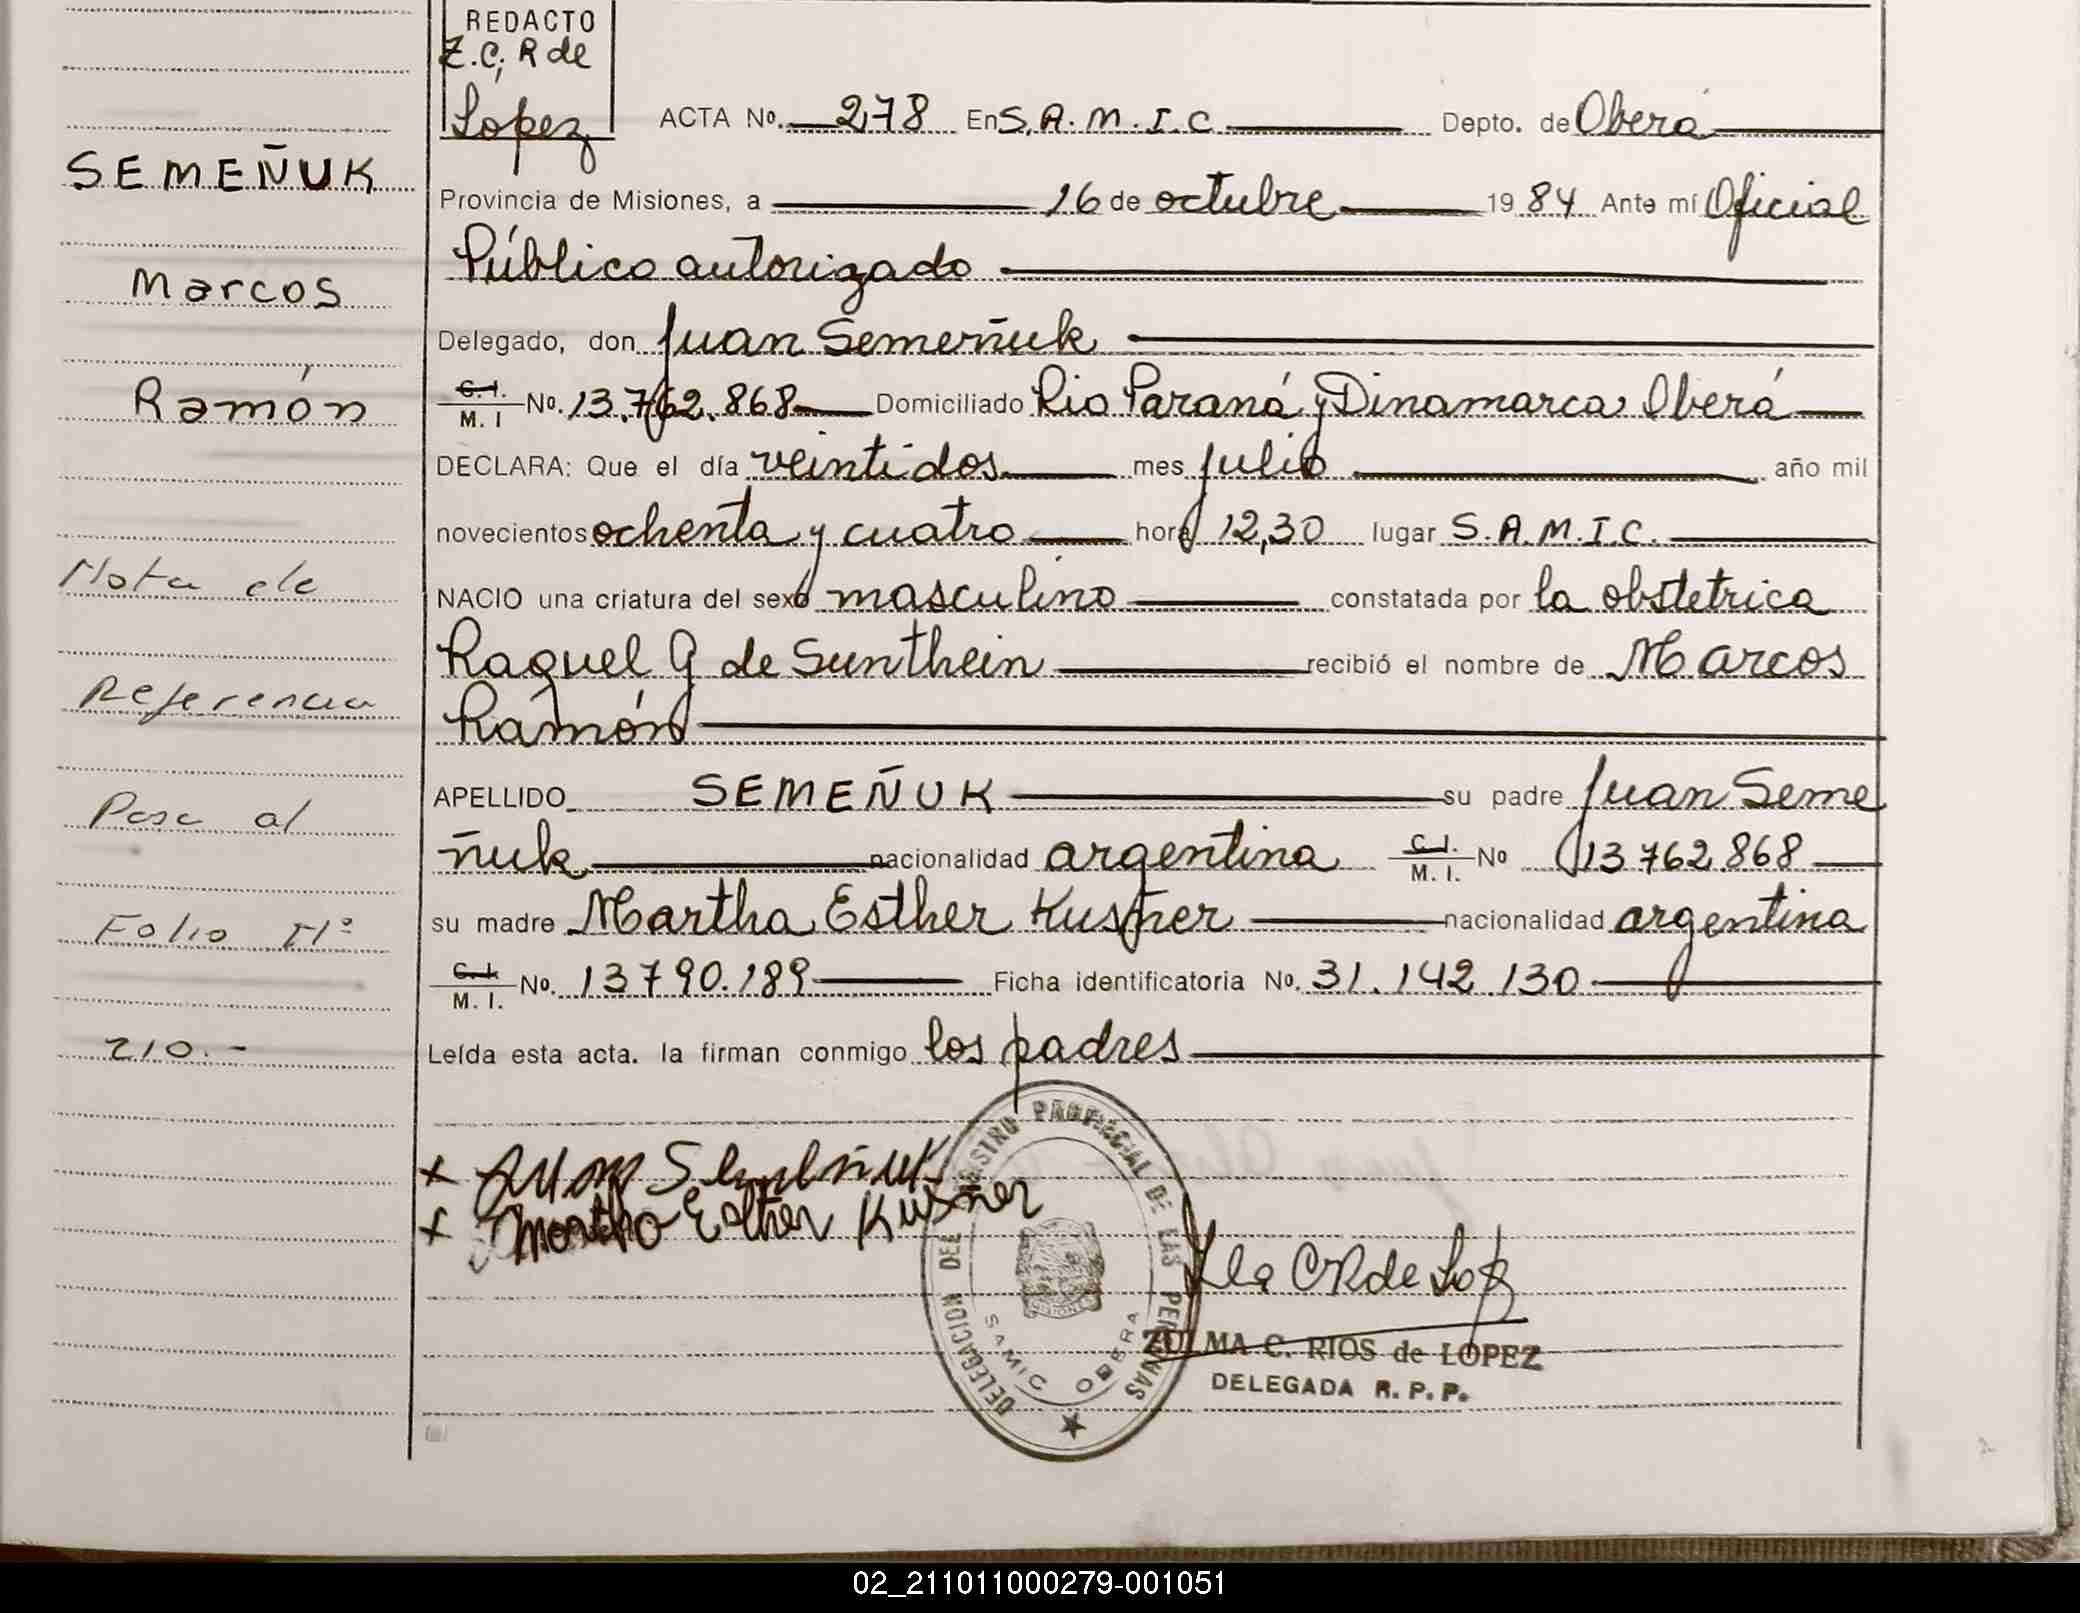 REDACTO
Z.C. R de
Lopez
ACTA No. 278 En S.A.M.I.C Depto. de Oberá
SEMEÑUK
Provincia de Misiones, a 16 de octubre 1984 Ante mí Oficial
Público autorizado
Marcos
Delegado, don Juan Semeñuk
Ramón
C.I. M.I No. 13.762.868 Domiciliado Rio Paraná y Dinamarca Oberá
DECLARA: Que el día veintidos mes julio año mil
novecientos ochenta y cuatro hora 12,30 lugar S.A.M.I.C.
Nota de
NACIO una criatura del sexo masculino constatada por la obstetrica
Raquel G de Sunthein recibió el nombre de Marcos
Referencia
Ramón
APELLIDO SEMEÑUK su padre Juan Seme
Pasa al
ñuk nacionalidad argentina C.I. M.I. No 13762.868
Folio Nº
su madre Martha Esther Kusñer nacionalidad argentina
C.I. M.I. No. 13790.189 Ficha identificatoria No. 31.142.130
210.-
Leída esta acta. la firman conmigo los padres
x Juan Semeñuk
x Martha Esther Kusñer
DELEGACION DEL REGISTRO PROVINCIAL DE LAS PERSONAS
SAMIC OBERA
ZULMA C. RIOS de LOPEZ
DELEGADA R.P.P.
02_211011000279-001051